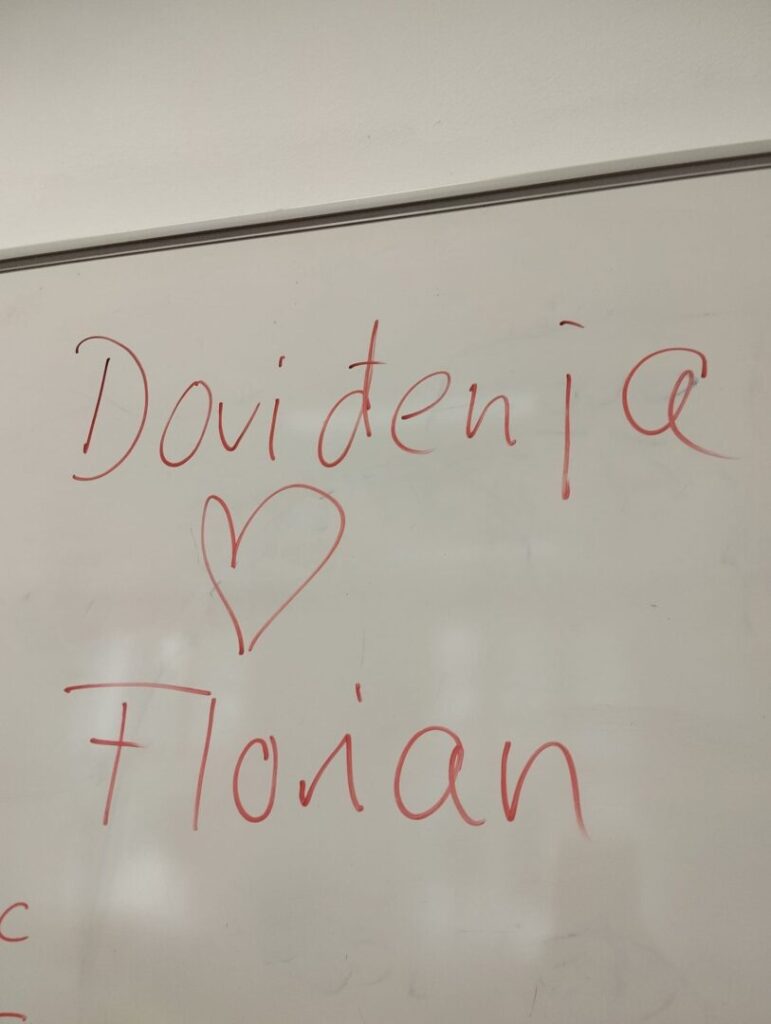 Doviđenja
♡
Florian